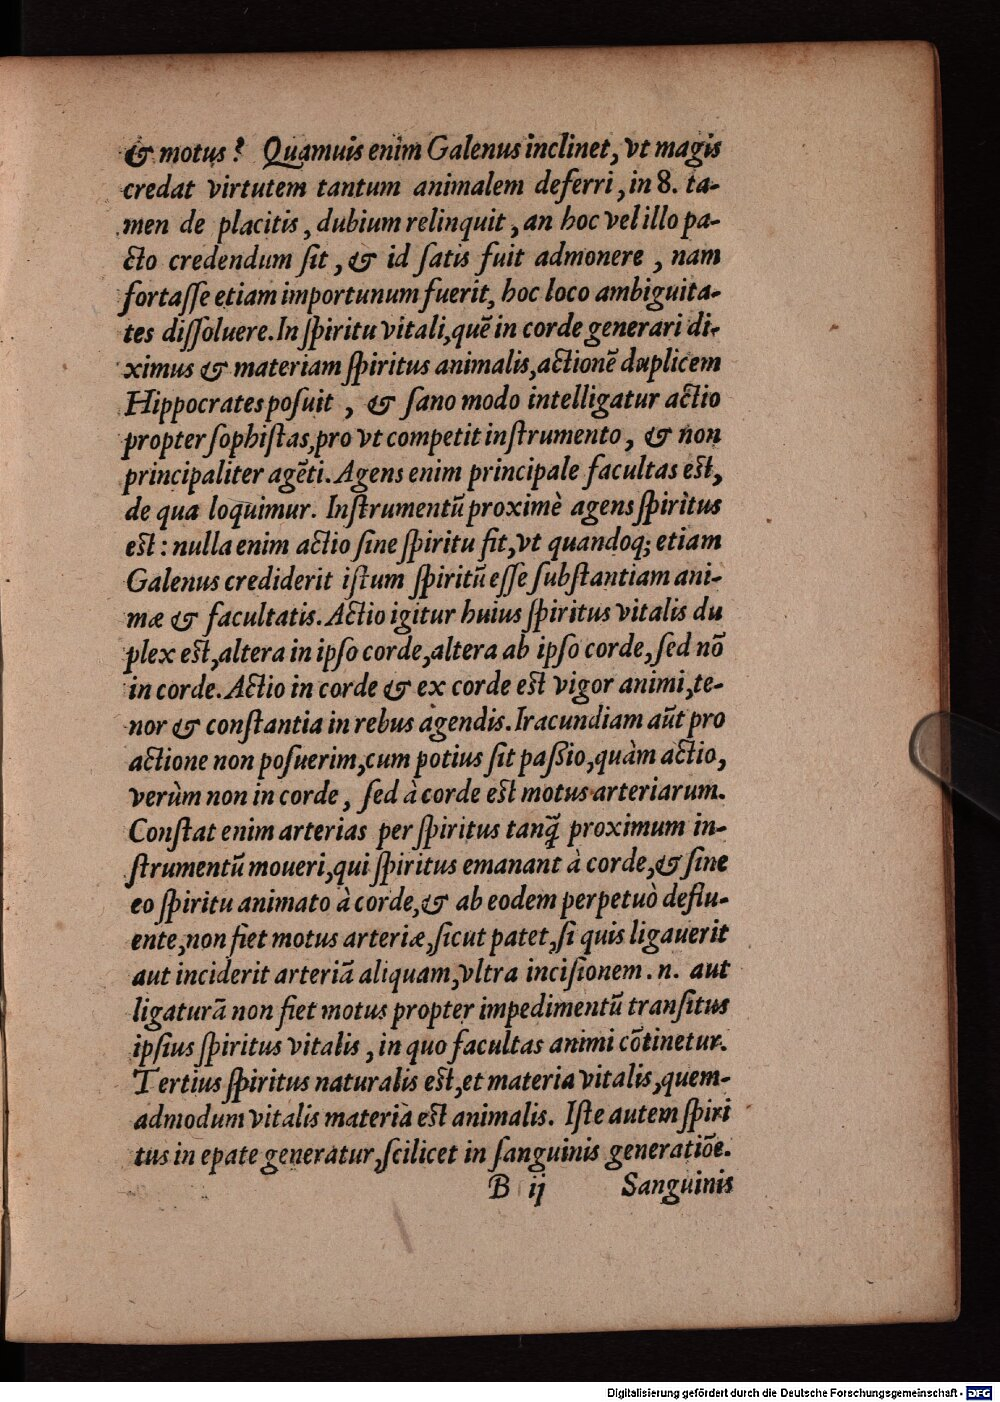 & motus? Quamuis enim Galenus inclinet, vt magis
credat virtutem tantum animalem deferri, in 8. ta-
men de placitis, dubium relinquit, an hoc vel illo pa-
cto credendum ſit, & id ſatis fuit admonere, nam
fortaſſe etiam importunum fuerit, hoc loco ambiguita-
tes diſſoluere. In ſpiritu vitali, quē in corde generari di-
ximus & materiam ſpiritus animalis, actionē duplicem
Hippocrates poſuit, & ſano modo intelligatur actio
propter ſophiſtas, pro vt competit inſtrumento, & non
principaliter agēti. Agens enim principale facultas eſt,
de qua loquimur. Inſtrumentū proximè agens ſpiritus
eſt: nulla enim actio ſine ſpiritu fit, vt quandoq; etiam
Galenus crediderit iſtum ſpiritū eſſe ſubſtantiam ani-
mæ & facultatis. Actio igitur huius ſpiritus vitalis du
plex eſt, altera in ipſo corde, altera ab ipſo corde, ſed nō
in corde. Actio in corde & ex corde eſt vigor animi, te-
nor & conſtantia in rebus agendis. Iracundiam aūt pro
actione non poſuerim, cum potius ſit paſſio, quàm actio,
verùm non in corde, ſed à corde eſt motus arteriarum.
Conſtat enim arterias per ſpiritus tanq̄ proximum in-
ſtrumentū moueri, qui ſpiritus emanant à corde, & ſine
eo ſpiritu animato à corde, & ab eodem perpetuò deflu-
ente, non fiet motus arteriæ, ſicut patet, ſi quis ligauerit
aut inciderit arteriā aliquam, vltra inciſionem .n. aut
ligaturā non fiet motus propter impedimentū tranſitus
ipſius ſpiritus vitalis, in quo facultas animi cōtinetur.
Tertius ſpiritus naturalis eſt, et materia vitalis, quem-
admodum vitalis materia eſt animalis. Iſte autem ſpiri
tus in epate generatur, ſcilicet in ſanguinis generatiōe.
B ij Sanguinis
Digitalisierung gefördert durch die Deutsche Forschungsgemeinschaft - DFG